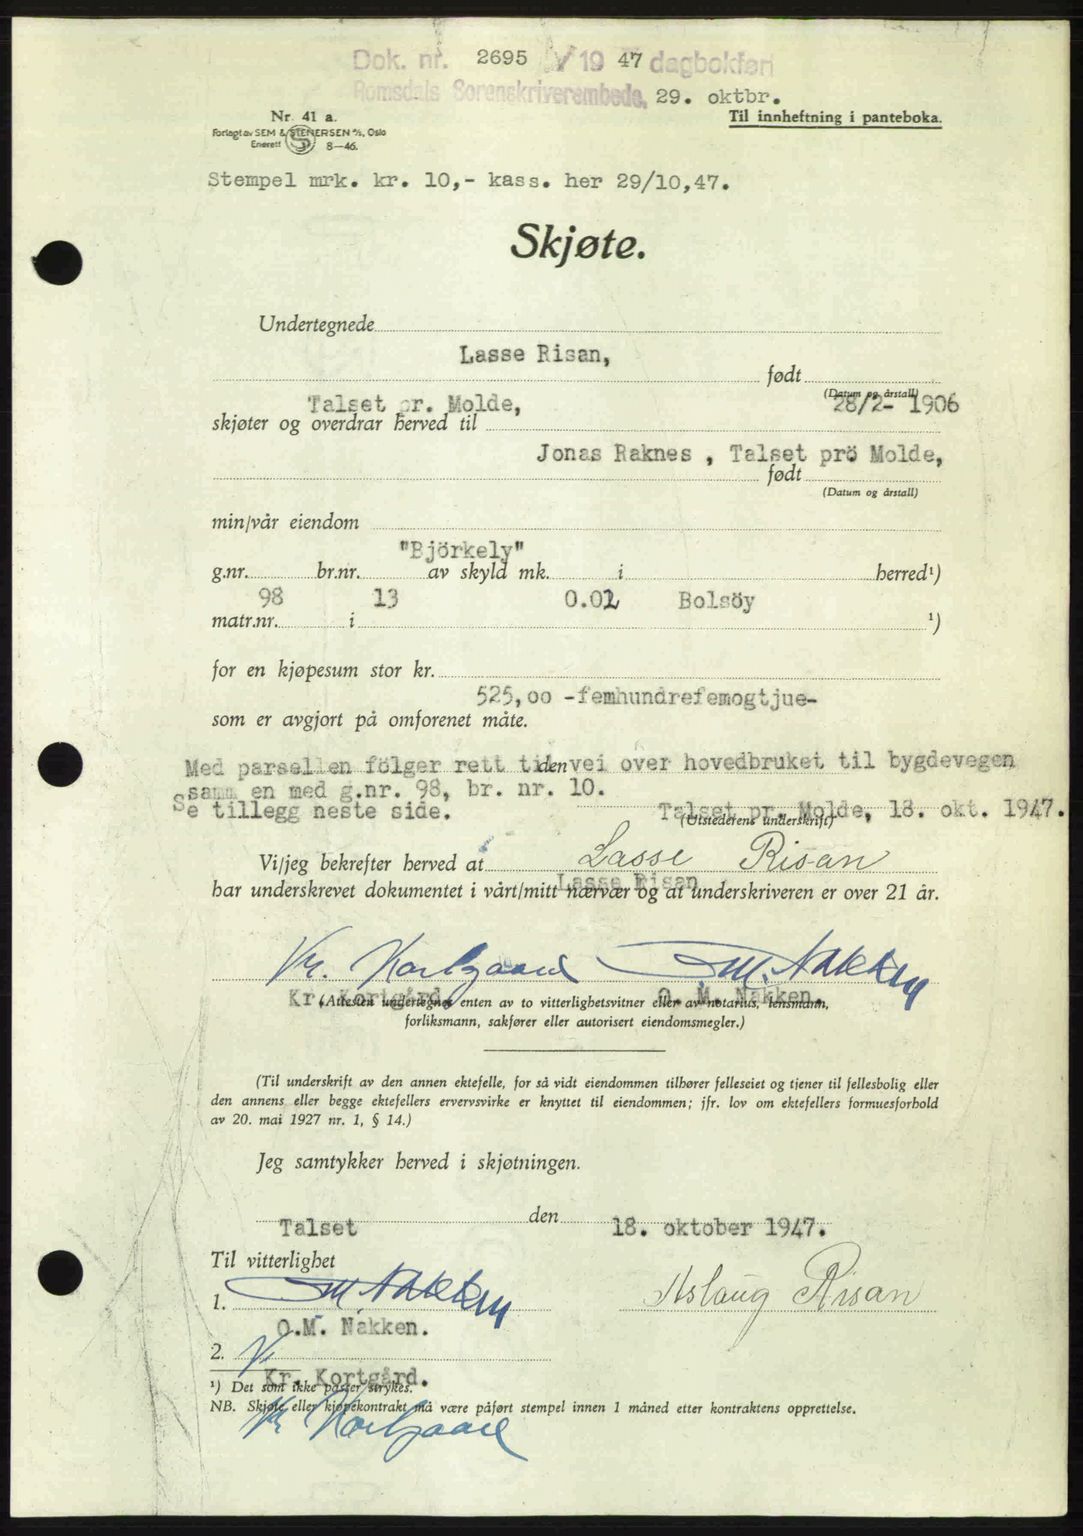 Dok. nr. 2695 / 19 47 dagbokført
Romsdals Sorenskriverembede, 29. oktbr.
Nr. 41 a.
Til innheftning i panteboka.
Forlagt av SEM & STENERSEN A/S, Oslo
Enerett S 8—46.
Stempel mrk. kr. 10,- kass. her 29/10,47.
Skjøte.
Undertegnede
Lasse Risan,
født
(Datum og årstall)
Talset pr. Molde, 28/2- 1906
skjøter og overdrar herved til
Jonas Raknes , Talset prö Molde,
født
(Datum og årstall)
min/vår eiendom
"Björkely"
g.nr. br.nr. av skyld mk. i herred¹)
98 13 0.02 Bolsöy
matr.nr. i ¹)
for en kjøpesum stor kr.
525,oo -femhundrefemogtjue-
som er avgjort på omforenet måte.
Med parsellen fölger rett til vei over hovedbruket til bygdevegen
den
samm en med g.nr. 98, br. nr. 10.
Se tillegg neste side. Talset pr. Molde, 18. okt. 1947.
(Utstederens underskrift)
Vi/jeg bekrefter herved at Lasse Risan
Lasse Risan
har underskrevet dokumentet i vårt/mitt nærvær og at underskriveren er over 21 år.
Kr. Kortgaard O M. Nakken
Kr. Kortgård. O. M. Nakken.
(Attesten undertegnes enten av to vitterlighetsvitner eller av notarius, lensmann,
forliksmann, sakfører eller autorisert eiendomsmegler.)
(Til underskrift av den annen ektefelle, for så vidt eiendommen tilhører felleseiet og tjener til fellesbolig eller
den annens eller begge ektefellers ervervsvirke er knyttet til eiendommen; jfr. lov om ektefellers formuesforhold
av 20. mai 1927 nr. 1, § 14.)
Jeg samtykker herved i skjøtningen.
den
Talset 18. oktober 1947.
Til vitterlighet
1. O M. Nakken Aslaug Risan
O.M. Nakken.
2. Kr
Kr. Kortgård.
¹) Det som ikke passer strykes.
NB. Skjøte eller kjøpekontrakt må være påført stempel innen 1 måned etter kontraktens opprettelse.
Kr Kortgaard